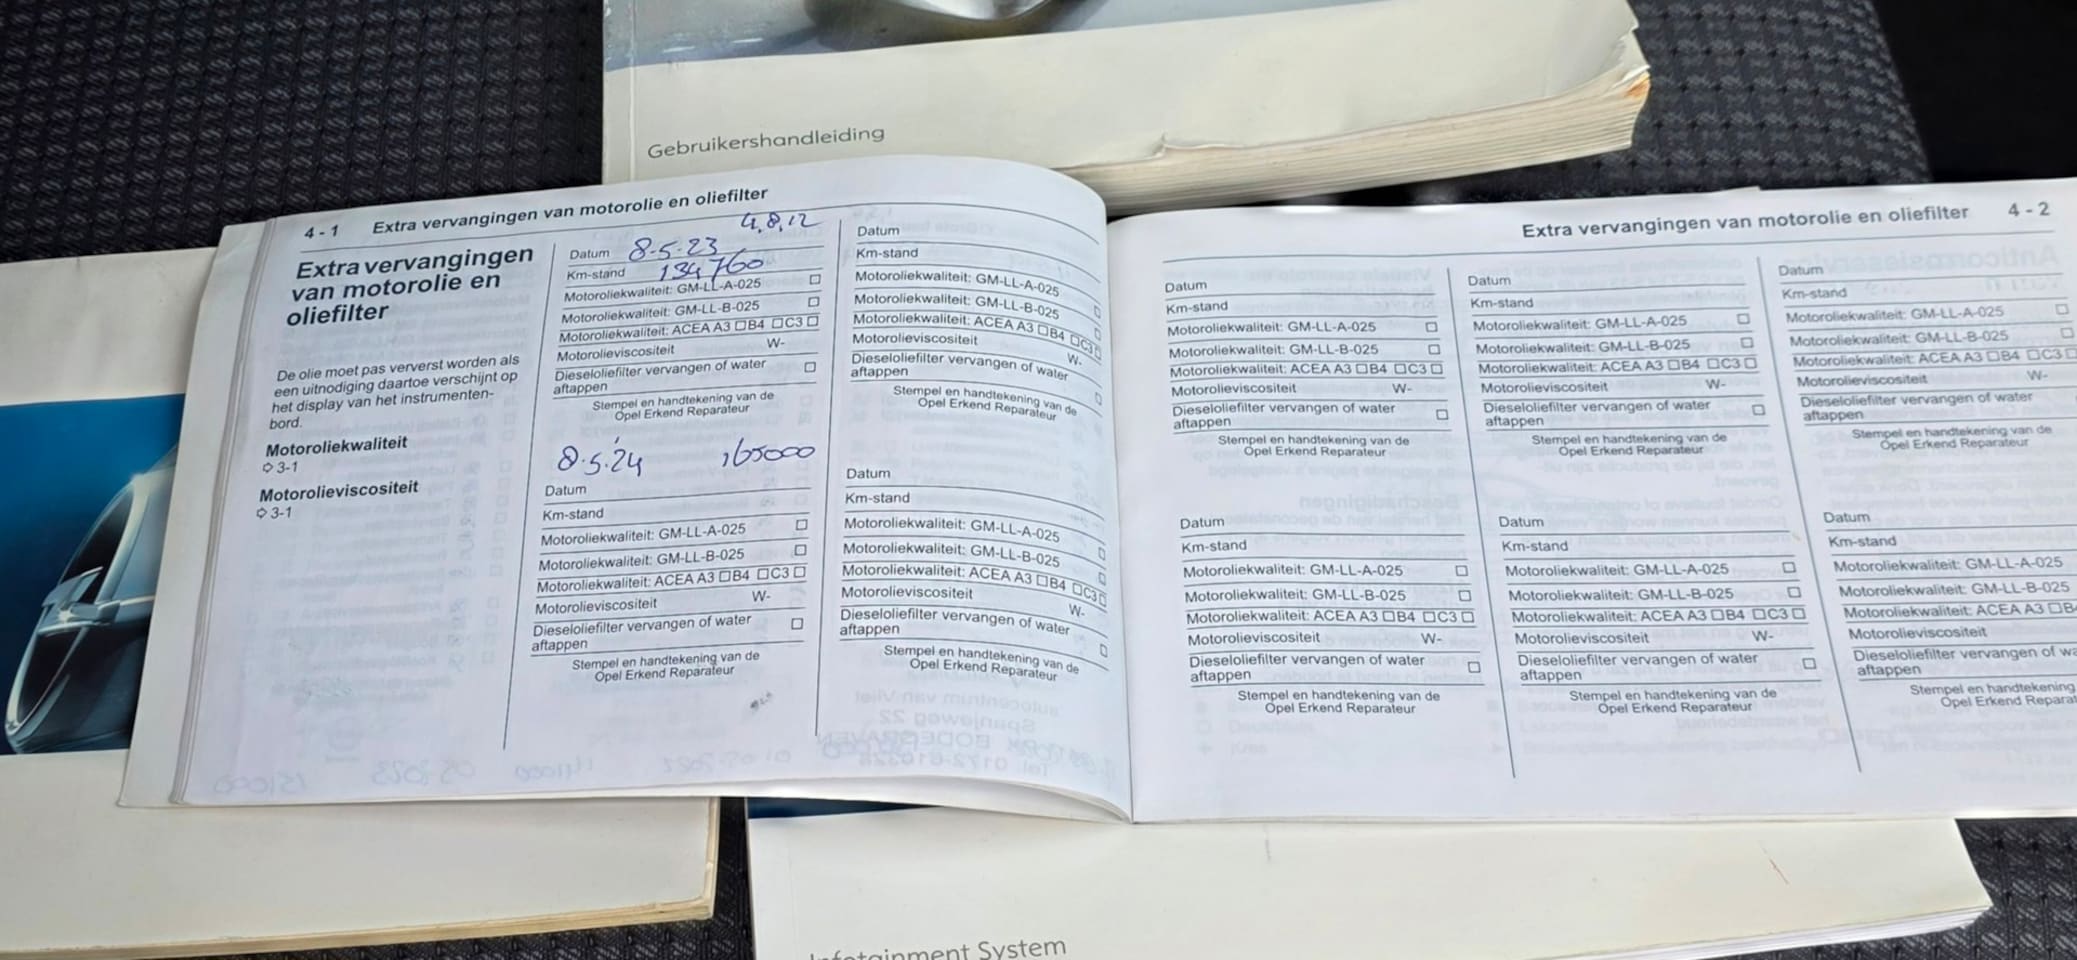 Gebruikershandleiding
4 - 1 Extra vervangingen van motorolie en oliefilter
Extra vervangingen
van motorolie en
oliefilter
De olie moet pas ververst worden als
een uitnodiging daartoe verschijnt op
het display van het instrumenten-
bord.
Motoroliekwaliteit
➪ 3-1
Motorolieviscositeit
➪ 3-1
4.8.12
Datum 8-5-23
Km-stand 134760
Motoroliekwaliteit: GM-LL-A-025 ☐
Motoroliekwaliteit: GM-LL-B-025 ☐
Motoroliekwaliteit: ACEA A3 ☐B4 ☐C3 ☐
Motorolieviscositeit W-
Dieseloliefilter vervangen of water ☐
aftappen
Stempel en handtekening van de
Opel Erkend Reparateur
8.5.24 165000
Datum
Km-stand
Motoroliekwaliteit: GM-LL-A-025 ☐
Motoroliekwaliteit: GM-LL-B-025 ☐
Motoroliekwaliteit: ACEA A3 ☐B4 ☐C3 ☐
Motorolieviscositeit W-
Dieseloliefilter vervangen of water ☐
aftappen
Stempel en handtekening van de
Opel Erkend Reparateur
Datum
Km-stand
Motoroliekwaliteit: GM-LL-A-025 ☐
Motoroliekwaliteit: GM-LL-B-025 ☐
Motoroliekwaliteit: ACEA A3 ☐B4 ☐C3 ☐
Motorolieviscositeit W-
Dieseloliefilter vervangen of water ☐
aftappen
Stempel en handtekening van de
Opel Erkend Reparateur
Datum
Km-stand
Motoroliekwaliteit: GM-LL-A-025 ☐
Motoroliekwaliteit: GM-LL-B-025 ☐
Motoroliekwaliteit: ACEA A3 ☐B4 ☐C3 ☐
Motorolieviscositeit W-
Dieseloliefilter vervangen of water ☐
aftappen
Stempel en handtekening van de
Opel Erkend Reparateur
Extra vervangingen van motorolie en oliefilter 4 - 2
Datum
Km-stand
Motoroliekwaliteit: GM-LL-A-025 ☐
Motoroliekwaliteit: GM-LL-B-025 ☐
Motoroliekwaliteit: ACEA A3 ☐B4 ☐C3 ☐
Motorolieviscositeit W-
Dieseloliefilter vervangen of water ☐
aftappen
Stempel en handtekening van de
Opel Erkend Reparateur
Datum
Km-stand
Motoroliekwaliteit: GM-LL-A-025 ☐
Motoroliekwaliteit: GM-LL-B-025 ☐
Motoroliekwaliteit: ACEA A3 ☐B4 ☐C3 ☐
Motorolieviscositeit W-
Dieseloliefilter vervangen of water ☐
aftappen
Stempel en handtekening van de
Opel Erkend Reparateur
Datum
Km-stand
Motoroliekwaliteit: GM-LL-A-025 ☐
Motoroliekwaliteit: GM-LL-B-025 ☐
Motoroliekwaliteit: ACEA A3 ☐B4 ☐C3 ☐
Motorolieviscositeit W-
Dieseloliefilter vervangen of water ☐
aftappen
Stempel en handtekening van de
Opel Erkend Reparateur
Datum
Km-stand
Motoroliekwaliteit: GM-LL-A-025 ☐
Motoroliekwaliteit: GM-LL-B-025 ☐
Motoroliekwaliteit: ACEA A3 ☐B4 ☐C3 ☐
Motorolieviscositeit W-
Dieseloliefilter vervangen of water ☐
aftappen
Stempel en handtekening van de
Opel Erkend Reparateur
Datum
Km-stand
Motoroliekwaliteit: GM-LL-A-025 ☐
Motoroliekwaliteit: GM-LL-B-025 ☐
Motoroliekwaliteit: ACEA A3 ☐B4 ☐C3 ☐
Motorolieviscositeit W-
Dieseloliefilter vervangen of water
aftappen
Stempel en handtekening van de
Opel Erkend Reparateur
Datum
Km-stand
Motoroliekwaliteit: GM-LL-A-025
Motoroliekwaliteit: GM-LL-B-025
Motoroliekwaliteit: ACEA A3 ☐B
Motorolieviscositeit
Dieseloliefilter vervangen of wa
aftappen
Stempel en handtekening
Opel Erkend Repara
Infotainment System